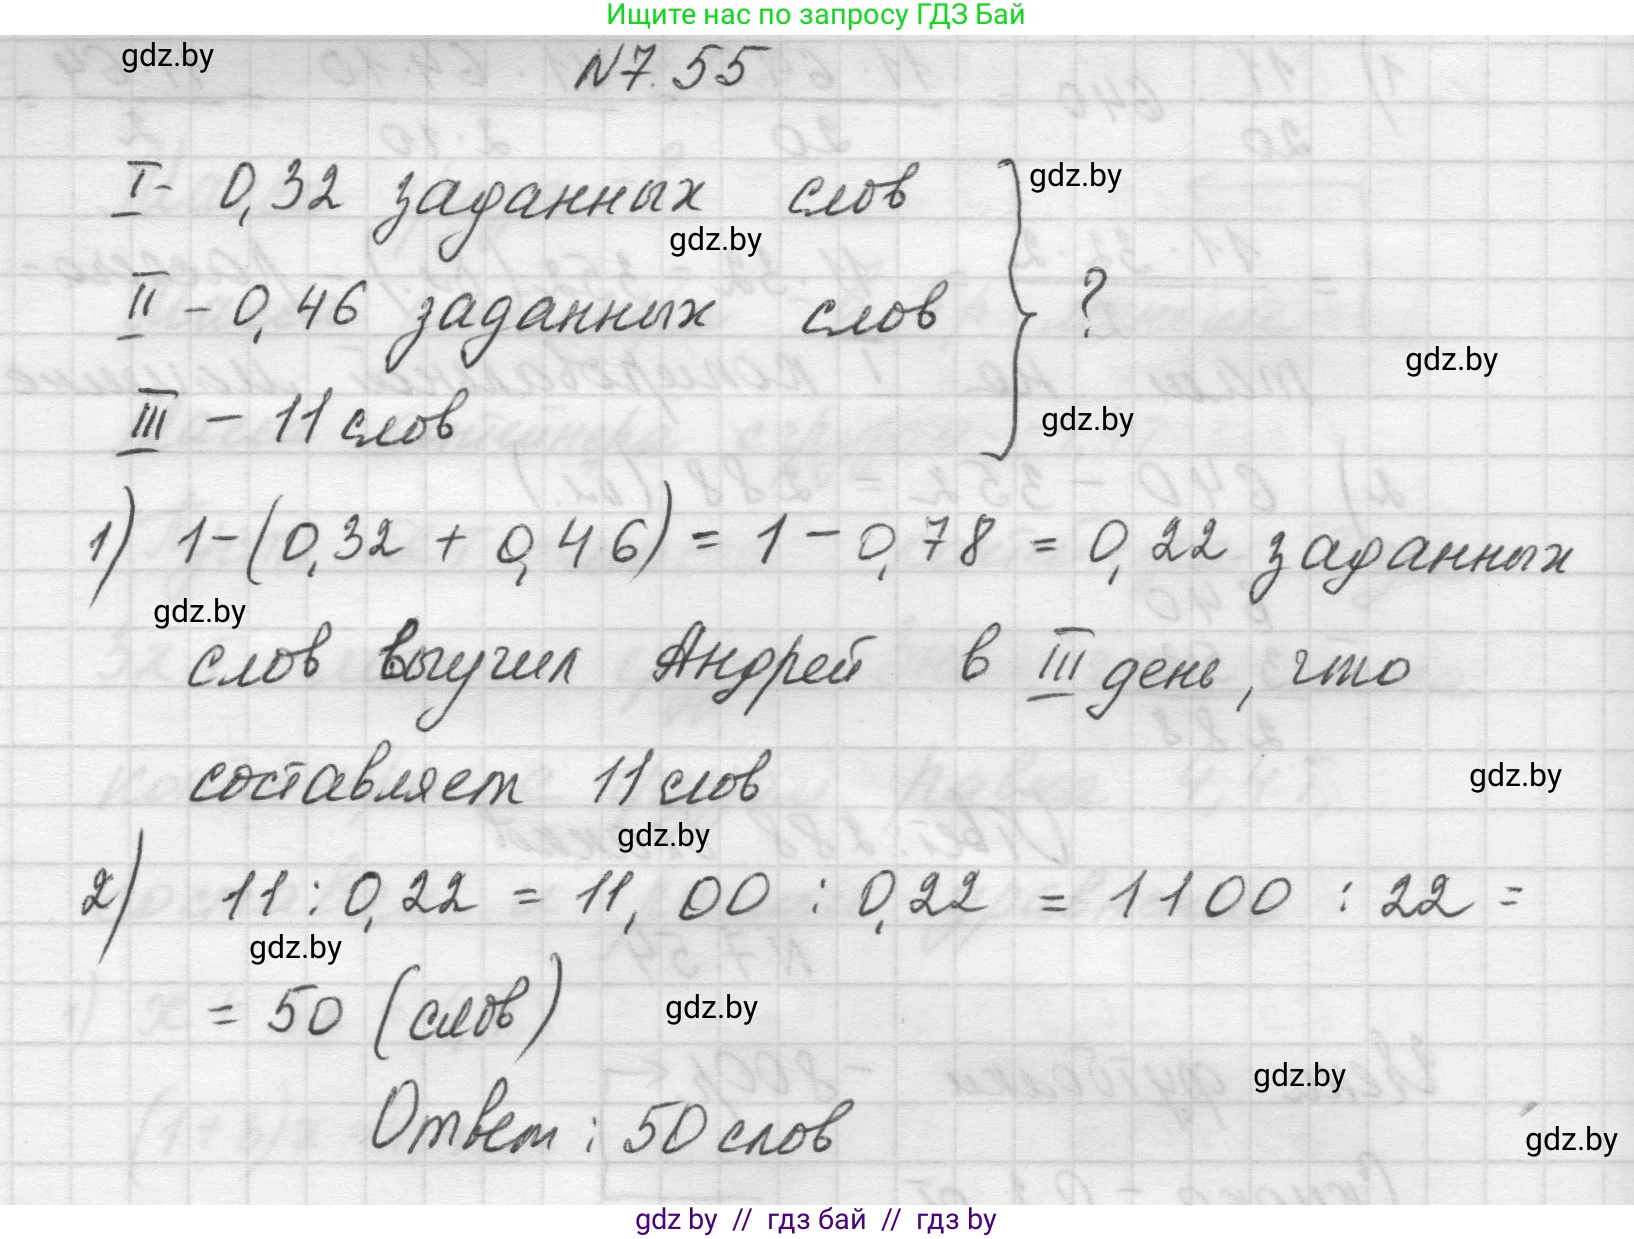 Ищите нас по запросу ГДЗ Бай
gdz.by
N7.55
I - 0,32 заданных слов
gdz.by
gdz.by
II - 0,46 заданных слов
?
gdz.by
III - 11 слов
gdz.by
1) 1-(0,32 + 0,46) = 1 - 0,78 = 0,22 заданных
gdz.by
слов выучил Андрей в III день, что
составляет 11 слов
gdz.by
gdz.by
2) 11 : 0,22 = 11,00 : 0,22 = 1100 : 22 =
gdz.by
= 50 (слов)
gdz.by
gdz.by
Ответ: 50 слов
gdz.by
gdz by // гдз бай // гдз by